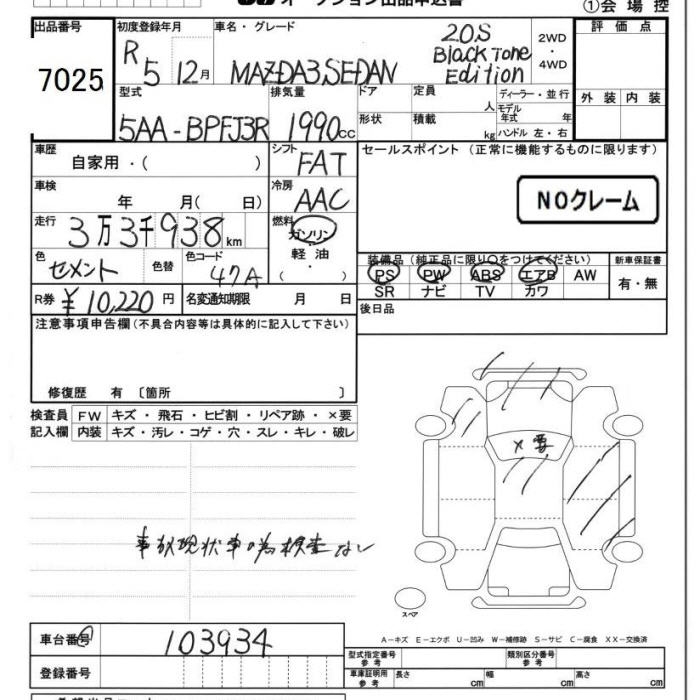 オークション出品申込書
①会場控
出品番号 初度登録年月 車名・グレード
7025
R5 12月
MAZDA3 SEDAN
20S
Black Tone
Edition
2WD
・
4WD
評価点
外装 内装
型式 排気量
5AA-BPFJ3R 1990cc
ドア 定員 人
形状 積載 kg
ディーラー・並行
モデル年式 年
ハンドル 左・右
車歴 自家用・( )
シフト FAT
セールスポイント (正常に機能するものに限ります)
NOクレーム
車検 年 月( 日)
冷房 AAC
走行 3万3千938km
燃料 ガソリン・軽油・( )
色 セメント 色替 色コード 47A
装備品 (純正品に限り○をつけてください) 新車保証書
PS PW ABS エアB AW 有・無
SR ナビ TV カワ
R券 ¥10,220円 名変通知期限 月 日
後日品
注意事項申告欄(不具合内容等は具体的に記入して下さい)
修復歴 有 〔箇所 〕
検査員 FW キズ・飛石・ヒビ割・リペア跡・×要
記入欄 内装 キズ・汚レ・コゲ・穴・スレ・キレ・破レ
×要
事故現状車の為検査なし
スペア
A-キズ E-エクボ U-凹み W-補修跡 S-サビ C-腐食 XX-交換済
車台番号 103934
登録番号
型式指定番号 参考 類別区分番号 参考
車庫証明用 参考 長さ cm 幅 cm 高さ cm